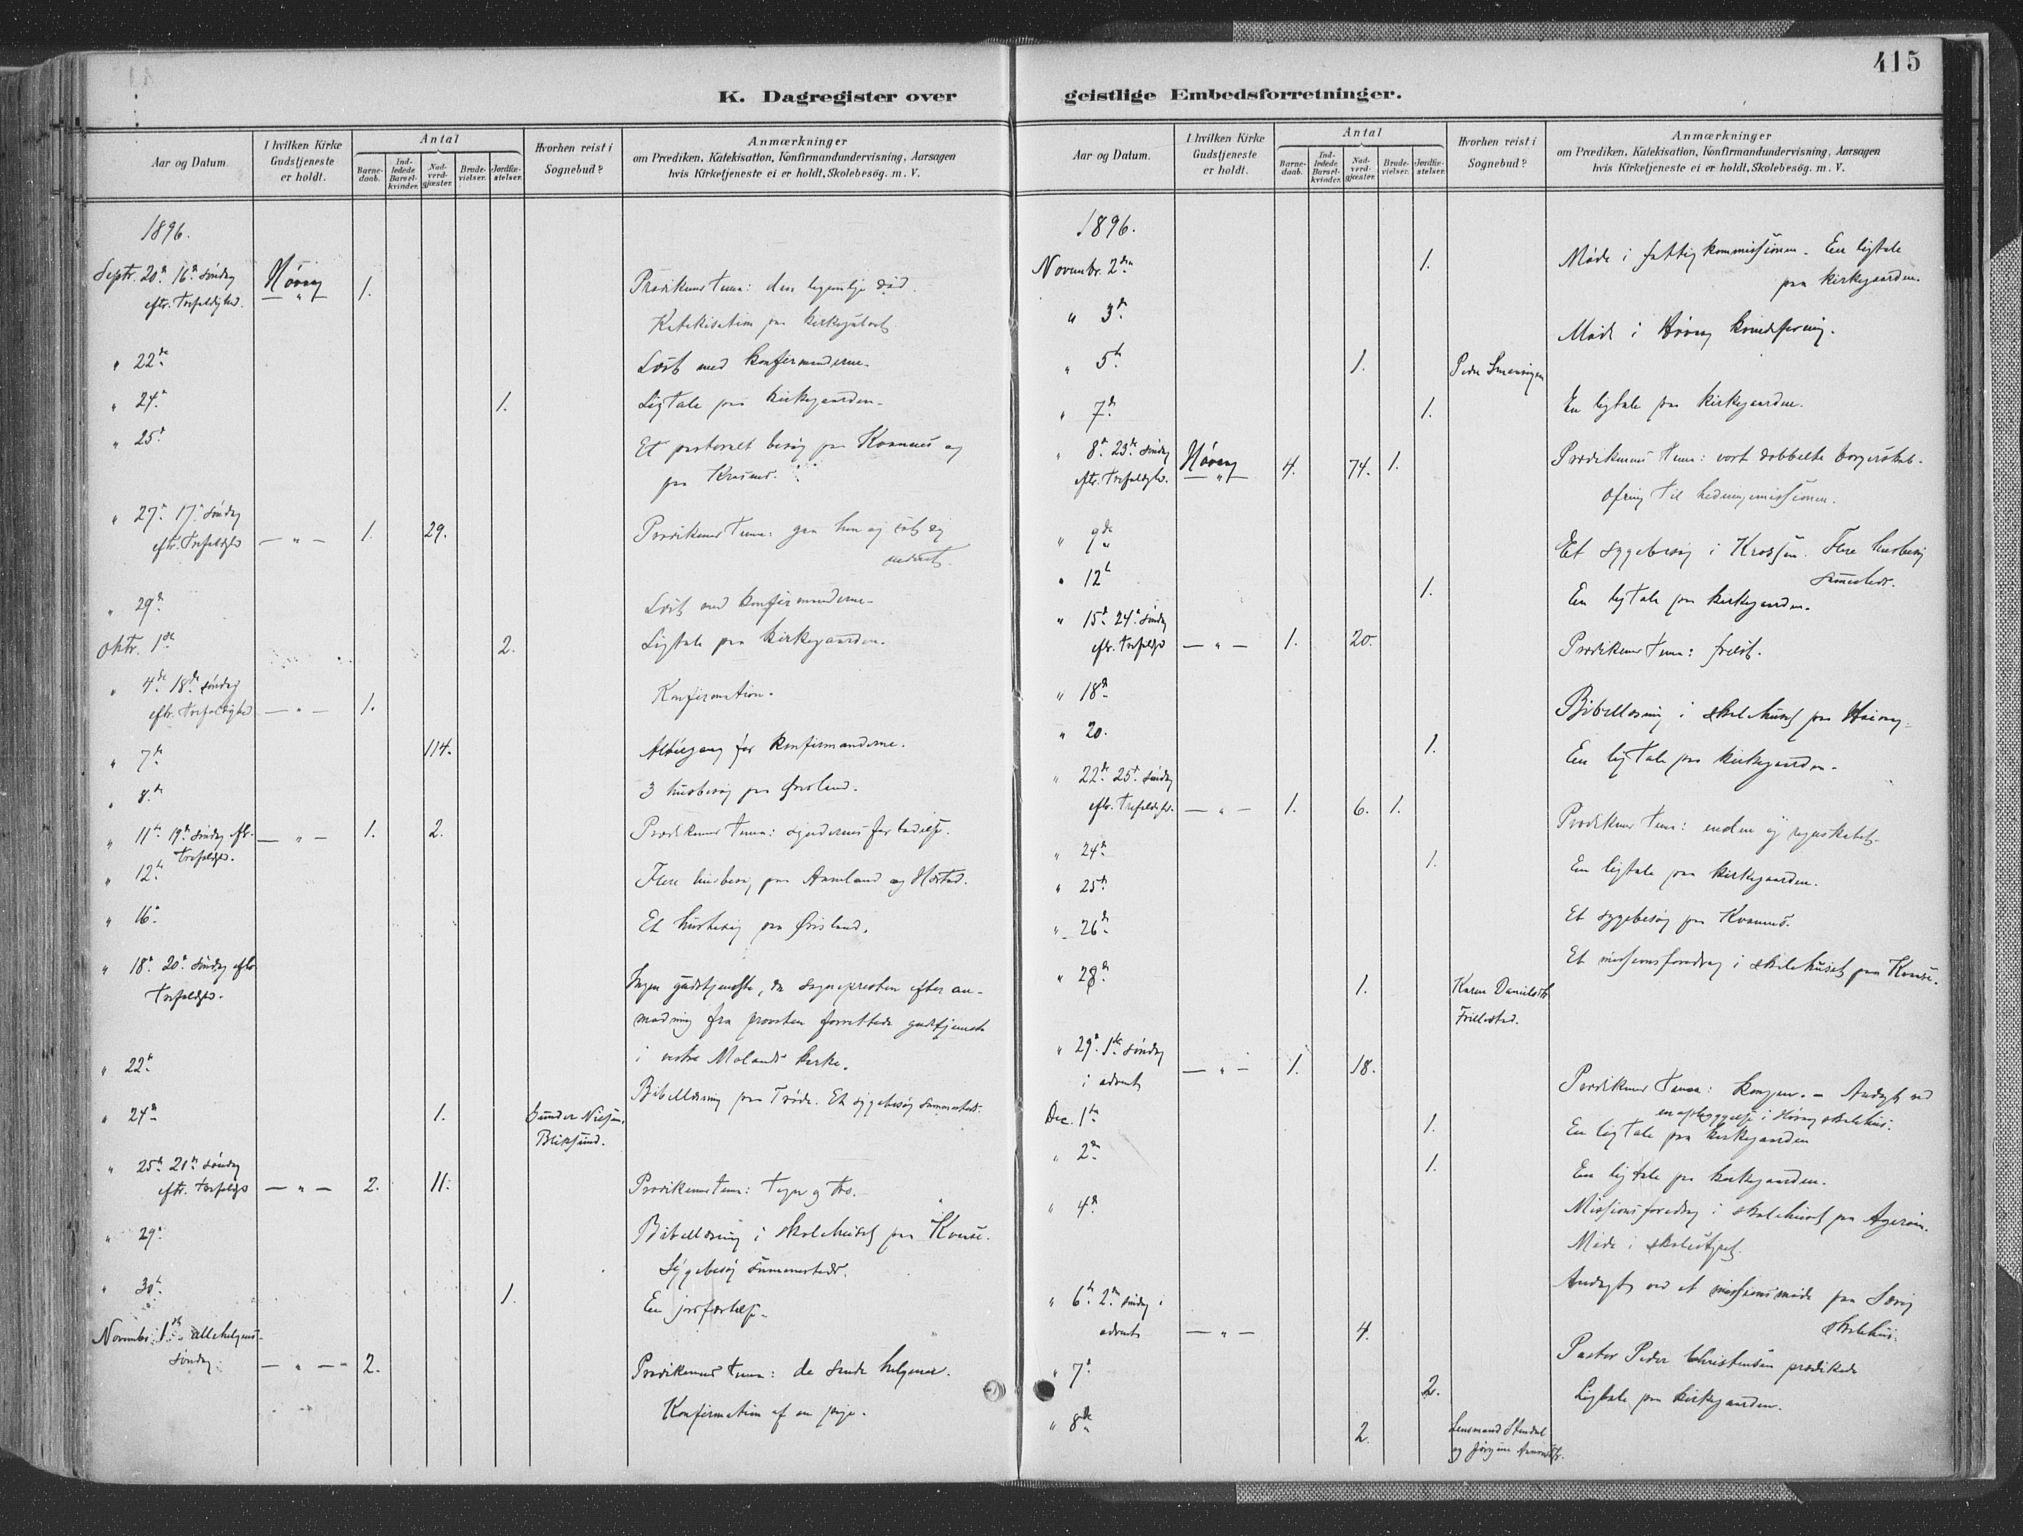 415
K. Dagregister over geistlige Embedsforretninger.
Aar og Datum.
I hvilken Kirke Gudstjeneste er holdt.
Antal
Barne-daab.
Ind-ledede Barsel-kvinder.
Nad-verd-gjæster.
Brude-vielser.
Jordfæ-stelser.
Hvorhen reist i Sognebud?
Anmærkninger
om Prædiken, Katekisation, Konfirmandundervisning, Aarsagen
hvis Kirketjeneste ei er holdt, Skolebesøg. m. V.
1896.
Septr. 20de 16de søndag
eftr. Trefoldighed. Høvåg 1. Prædikenens tema: den legemlige død.
Katekisation paa kirkegulvet
" 22de Læst med konfirmanderne.
" 24de 1. Ligtale paa kirkegaarden.
" 25de Et pastoralt besøg paa Kvannes og
paa
" 27de 17de søndag
eftr. Trefoldighd — " — 1. 29. Prædikenens tema: gaa hen og sæt dig
nederst.
" 29de Læst med konfirmanderne.
Oktr. 1ste 2. Ligtale paa kirkegaarden.
" 4de 18de søndag
eftr. Trefoldighed — " — 1. Konfirmation.
" 7de 114. Altergang for konfirmanderne.
" 8de 3 husbesøg paa Øvsland.
" 11te 19de søndag eftr.
Trefoldighd. — " — 1. 2. Prædikenens tema: syndernes forladelse.
" 12te Flere husbesøg paa Aamland og Hæstad.
" 16de Et husbesøg paa Øvsland.
" 18de 20de søndag eftr.
Trefoldighd. Ingen gudstjeneste, da sognepresten efter an-
modning fra provsten forrettede gudstjeneste
i vestre Molands kirke.
" 22de Bibellæsning paa Trøde. Et sygebesøg sammesteds.
" 24de 1. Gunder Nielsen,
Bliksund.
" 25de 21de søndag
eftr. Trefoldigd — " — 2. 11. Prædikenens tema: Tegn og tro.
" 29de Bibellæsning i skolehuset paa Kvaase.
Sygebesøg sammesteds.
" 30te 1. En jordfæstelse.
Novembr. 1ste allehelgens-
søndag. — " — 2. Prædikenens tema: de sande helgener.
Konfirmation af en pige.
Aar og Datum.
I hvilken Kirke Gudstjeneste er holdt.
Antal
Barne-daab.
Ind-ledede Barsel-kvinder.
Nad-verd-gjæster.
Brude-vielser.
Jordfæ-stelser.
Hvorhen reist i Sognebud?
Anmærkninger
om Prædiken, Katekisation, Konfirmandundervisning, Aarsagen
hvis Kirketjeneste ei er holdt, Skolebesøg. m. V.
1896.
Novembr. 2den 1. Møde i fattigkommissionen. En ligtale
paa kirkegaarden.
" 3de Møde i Høvåg kvindeforening.
" 5te 1. Peder
" 7de 1. En ligtale paa kirkegaarden.
" 8de 23de søndag
eftr. Trefoldighd. Høvåg 4. 74. 1. Prædikenens tema: vort dobbelte borgerskab.
Ofring til hedningemissionen.
" 9de Et sygebesøg i Krossen. Flere husbesøg
sammesteds.
" 12te 1. En ligtale paa kirkegaarden.
" 15de 24de søndag
eftr. Trefoldigd — " — 1. 20. Prædikenens tema: frelst.
" 18de Bibellæsning i skolehuset paa
" 20. 1. En ligtale paa kirkegaarden.
" 22de 25de søndag
eftr. Trefoldighd. — " — 1. 6. 1. Prædikenens tema: enden og regnskabet.
" 24de 1. En ligtale paa kirkegaarden.
" 25de Et sygebesøg paa Kvannes.
" 26de Et missionsforedrag i skolehuset paa Kvaase.
" 28de 1. Karen Danielsdtr.
Frillestad.
" 29de 1ste søndag
i advent — " — 1. 18. Prædikenens tema: kongen. — Andagt ved
en opbyggelse i Høvåg skolehus.
Dec. 1ste 1. En ligtale paa kirkegaarden
" 2den 1. En ligtale paa kirkegaarden.
" 4de Missionsforedrag i skolehuset paa Ageröen.
Møde i skolestyret.
" 6te 2den søndag i
advent — " — 4. Andagt ved et missionsmøde paa
skolehus.
Pastor Peder Christensen prædikede
" 7de 2. Ligtale paa kirkegaarden.
" 8de 2. Lensmand Stendal
og Jørgine